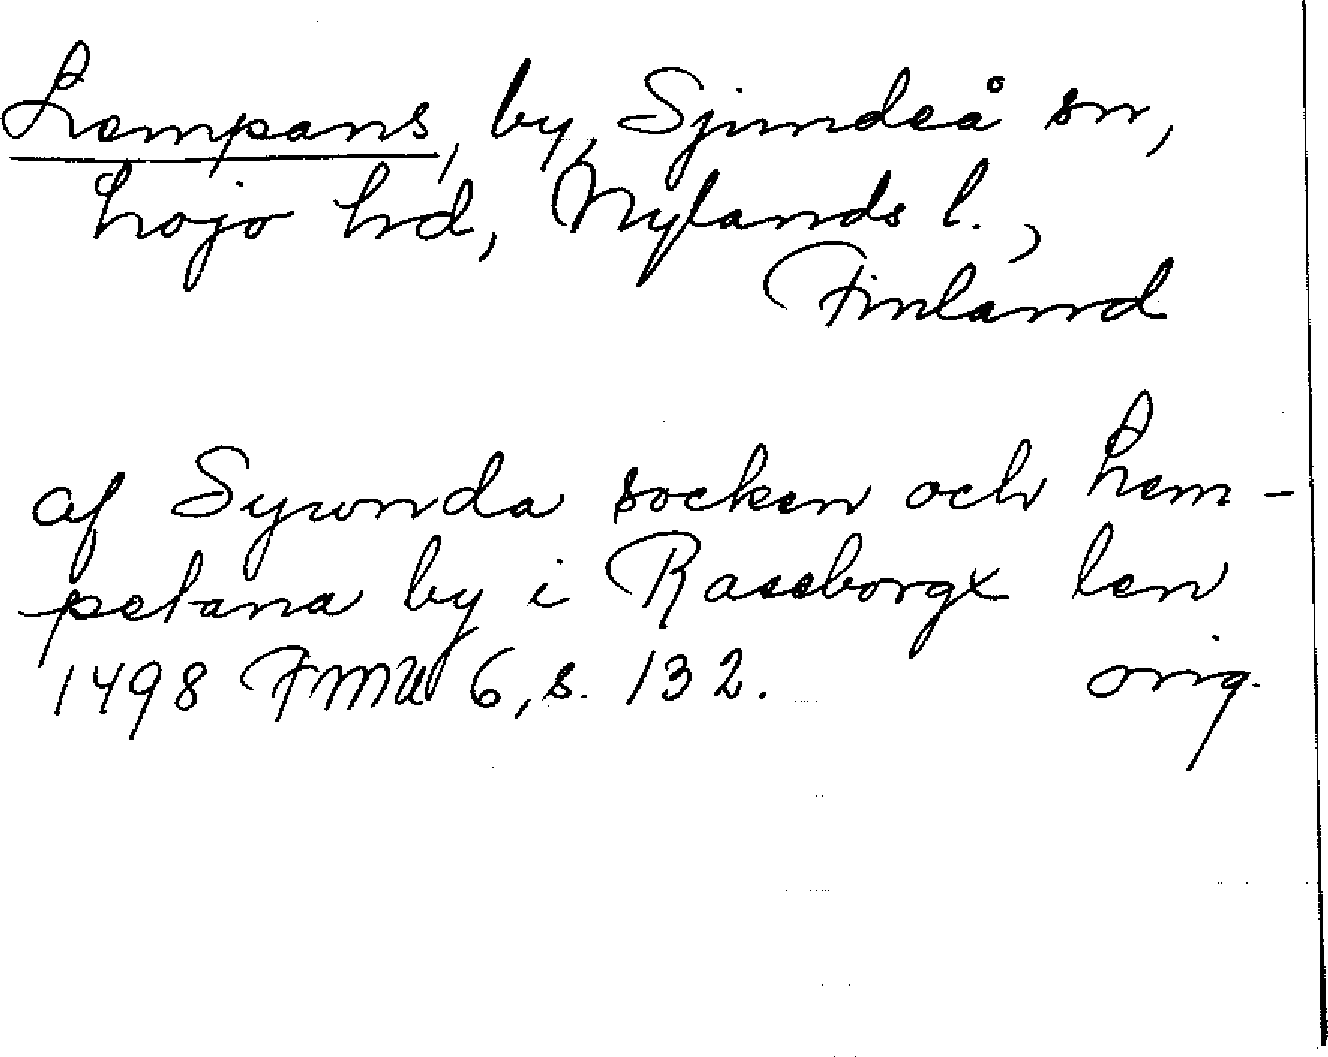 Lempans, by, Sjundeå sn,
Lojo hd, Nylands l.,
Finland
af Sywnda socken och Lem-
pelana by i Raseborgx len
1498 FMU 6, s. 132. orig.